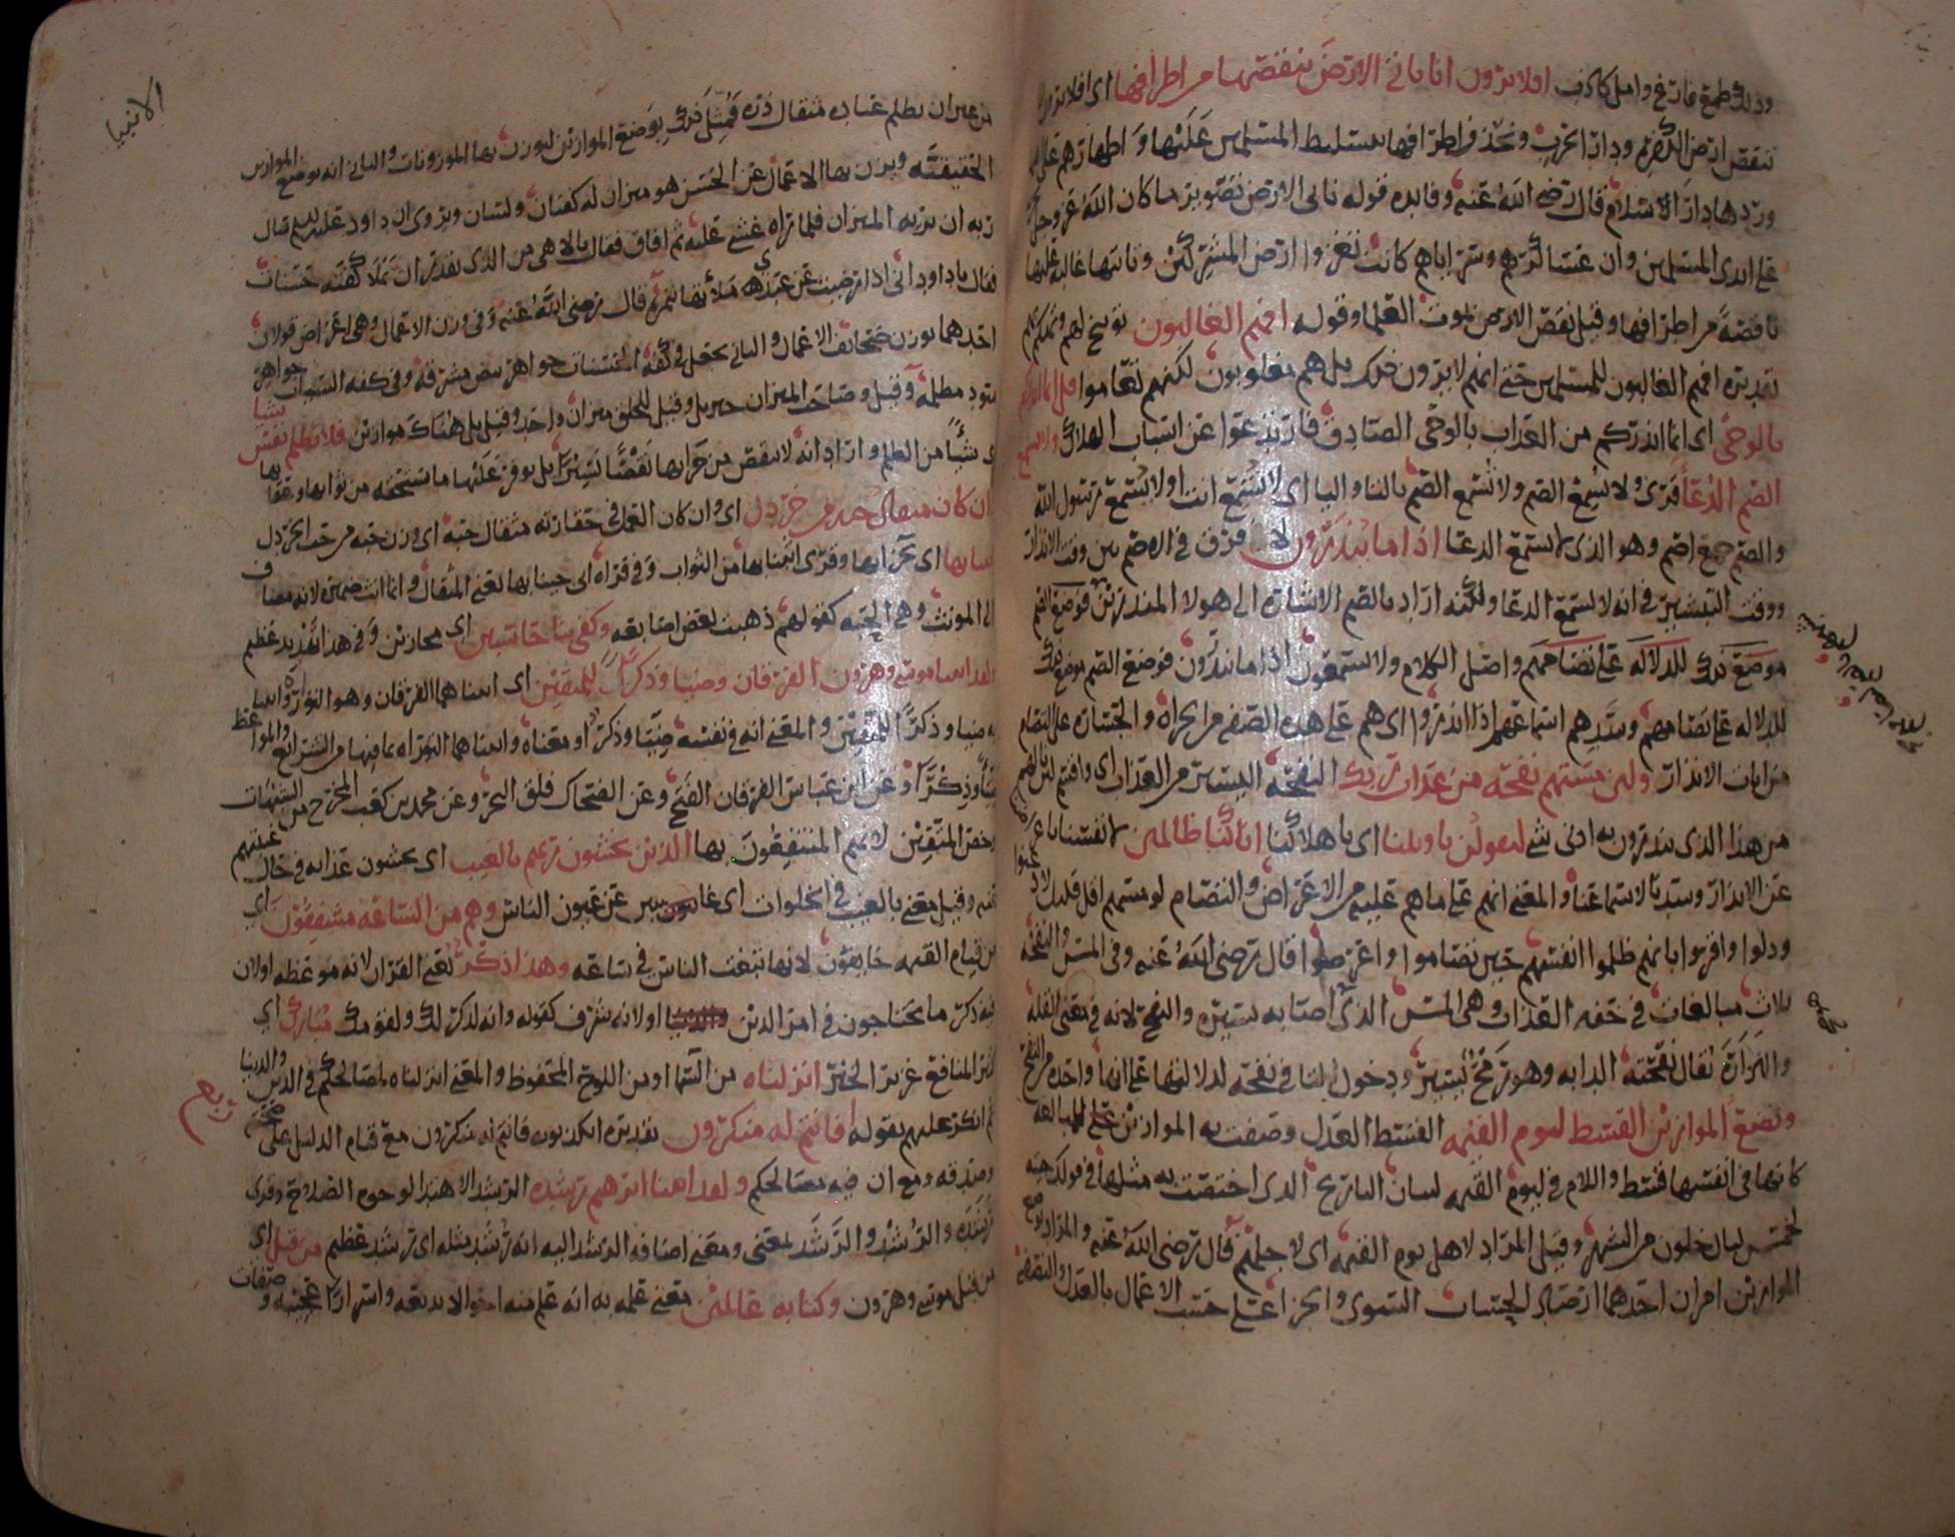 وذلك طمع فارغ وامل كاذب افلا يرون انا ناتي الارض ننقصها من اطرافها اي افلا يرون انا
ننقص ارض الكفره ودار الحرب ونحذف اطرافها بتسليط المسلمين عليها واظهارهم على اهلها
وردها دار الاسلام قال رضي الله عنه وفايده قوله ناتي الارض تصوير ما كان الله عز وجل يجريه
على ايدي المسلمين وان عساكرهم وسراياهم كانت تغزوا ارض المشركين وتاتيها غالبة عليها
ناقصة من اطرافها وقيل نقص الارض بموت العلما وقوله افهم الغالبون توبيخ لهم وتهكم بهم
تقديره افهم الغالبون للمسلمين حتى انهم لا يرون ذلك بل هم مغلوبون لكنهم تعاموا قل انما انذركم
بالوحي اي انما انذركم من العذاب بالوحي الصادق فارتدعوا عن اسباب الهلاك ولا يسمع
الصم الدعا قرئ ولا يسمع الصم ولا تسمع الصم بالتا واليا اي لا تسمع انت او لا يسمع رسول الله
والصم جمع اصم وهو الذي لا يسمع الدعا اذا ما ينذرون لا فرق في الاصم بين وقت الانذار
ووقت التبشير في انه لا يسمع الدعا ولكنه اراد بالصم الاشاره الى هولا المنذرين فوضع الصم
موضع ذلك للدلاله على تصاممهم واصل الكلام ولا يسمعون اذا ما ينذرون فوضع الصم موضع ذلك
للدلاله على تصاممهم وسدهم اسماعهم اذا انذروا اي هم على هذه الصفه من الجراه والجساره على التصام
من ايات الانذار ولين مستهم نفحه من عذاب ربك النفحه اليسير من العذاب اي وافهم لين نالهم
من هذا الذي ينذرون به ادنى شي ليقولن يا ويلنا اي يا هلاكنا انا كنا ظالمين لانفسنا
عن الانذار وسدنا لاسماعنا والمعنى انهم على ما هم عليه من الاعراض والتصام لو مسهم اقل قليل لاذعنوا
وذلوا واقروا بانهم ظلموا انفسهم حين تصاموا واعرضوا قال رضي الله عنه وفي المس والنفحه
ثلاث مبالغات في خفه العذاب وهي المس الذي اصابه يسيره والنفح لانه في معنى القله
والنزارة يقال نفحته الدابه وهو رمح يسير ودخول التا في نفحه لدلالتها على انها واحده من النفح
ونضع الموازين القسط ليوم القيمه القسط العدل وصفت به الموازين على المبالغه
كانها في انفسها قسط واللام في ليوم القيمه لبيان التاريخ الذي اختصت به مثلها في قولك جيته
لخمس ليال خلون من الشهر وقيل المراد لاهل يوم القيمه اي لاجلهم قال رضي الله عنه والمراد بوضع
الموازين امران احدهما ارصاد الحساب السوي والجزا على حسب الاعمال بالعدل والنصفه
الانبيا
من غير ان يظلم عباده مثقال ذره فمثل ذلك بوضع الموازين لتوزن بها الموزونات والثاني انه توضع الموازين
الحقيقيه ويزن بها الاعمال عن الحسن هو ميزان له كفتان ولسان ويروى ان داود عليه السلم سال
ربه ان يريه الميزان فلما راه غشي عليه ثم افاق فقال يا الاهي من الذي يقدر ان يملا كفته حسنات
فقال يا داود اني اذا رضيت عن عبدي ملأتها بتمره قال رضي الله عنه وفي وزن الاعمال وهي اعراض قولان
احدهما توزن صحائف الاعمال والثاني تجعل في كفه الحسنات جواهر بيض مشرقه وفي كفه السيئات جواهر
سود مظلمه وقيل وصاحب الميزان جبريل وقيل للخلق ميزان واحد وقيل بل هناك موازين فلا تظلم نفس شيا
اي شيأ من الظلم واراد انه لا ينقص من جزايها نقصا يسيرا بل يوفر عليها ما تستحقه من ثوابها وعقابها
وان كان مثقال حبه من خردل اي وان كان العمل في حقارته مثقال حبه اي وزن حبه من حب الخردل
اتينا بها اي نحن اتينا بها وقرئ اثبنا بها من الثواب وفي قراه ابي جينا بها يعني المثقال وانما انث ضميره لانه مضاف
الى المونث وهي الحبه كقولهم ذهبت بعض اصابعه وكفى بنا حاسبين اي مجازين وفي هذا تهديد عظيم
ولقد اتينا موسى وهرون الفرقان وضيا وذكرا للمتقين اي اتينا هما الفرقان وهو التوراه واتينا
به ضيا وذكرا للمتقين والمعنى انه في نفسه ضيا وذكر او معناه واتينا هما التوراه بما فيها من الشرايع والمواعظ
ضيأ وذكرا وعن ابن عباس الفرقان الفتح وعن الضحاك فلق البحر وعن محمد بن كعب المخرج من الشبهات
وخص المتقين لانهم المنتفعون بها الذين يخشون ربهم بالغيب اي يخشون عذابه في حال غيبتهم
عنه وقيل معنى بالغيب في الخلوات اي غائبين عن عيون الناس وهم من الساعه مشفقون اي
من قيام القيمه خايفون لانها تبغت الناس في ساعه وهذا ذكر يعني القران لانه موعظه او لان
فيه ذكر ما يحتاجون في امر الدين او لانه شرف كقوله وانه لذكر لك ولقومك مبارك اي
كثير المنافع غزير الخير انزلناه من السما او من اللوح المحفوظ والمعنى انزلناه لمصالحكم في الدين والدنيا
ثم انكر عليهم بقوله افانتم له منكرون تقديره اتكذبون فانتم له منكرون مع قيام الدليل على صحته
وصدقه ومع ان فيه مصالحكم ولقد اتينا ابرهيم رشده الرشد الاهتدا لوجوه الصلاح وقرئ
رشده والرشد والرشد بمعنى ومعنى اضافه الرشد اليه انه رشد مثله اي رشد عظيم من قبل اي
من قبل موسى وهرون وكنا به عالمين معنى علمه به انه علم منه احوالا بديعه واسرارا عجيبه وصفات